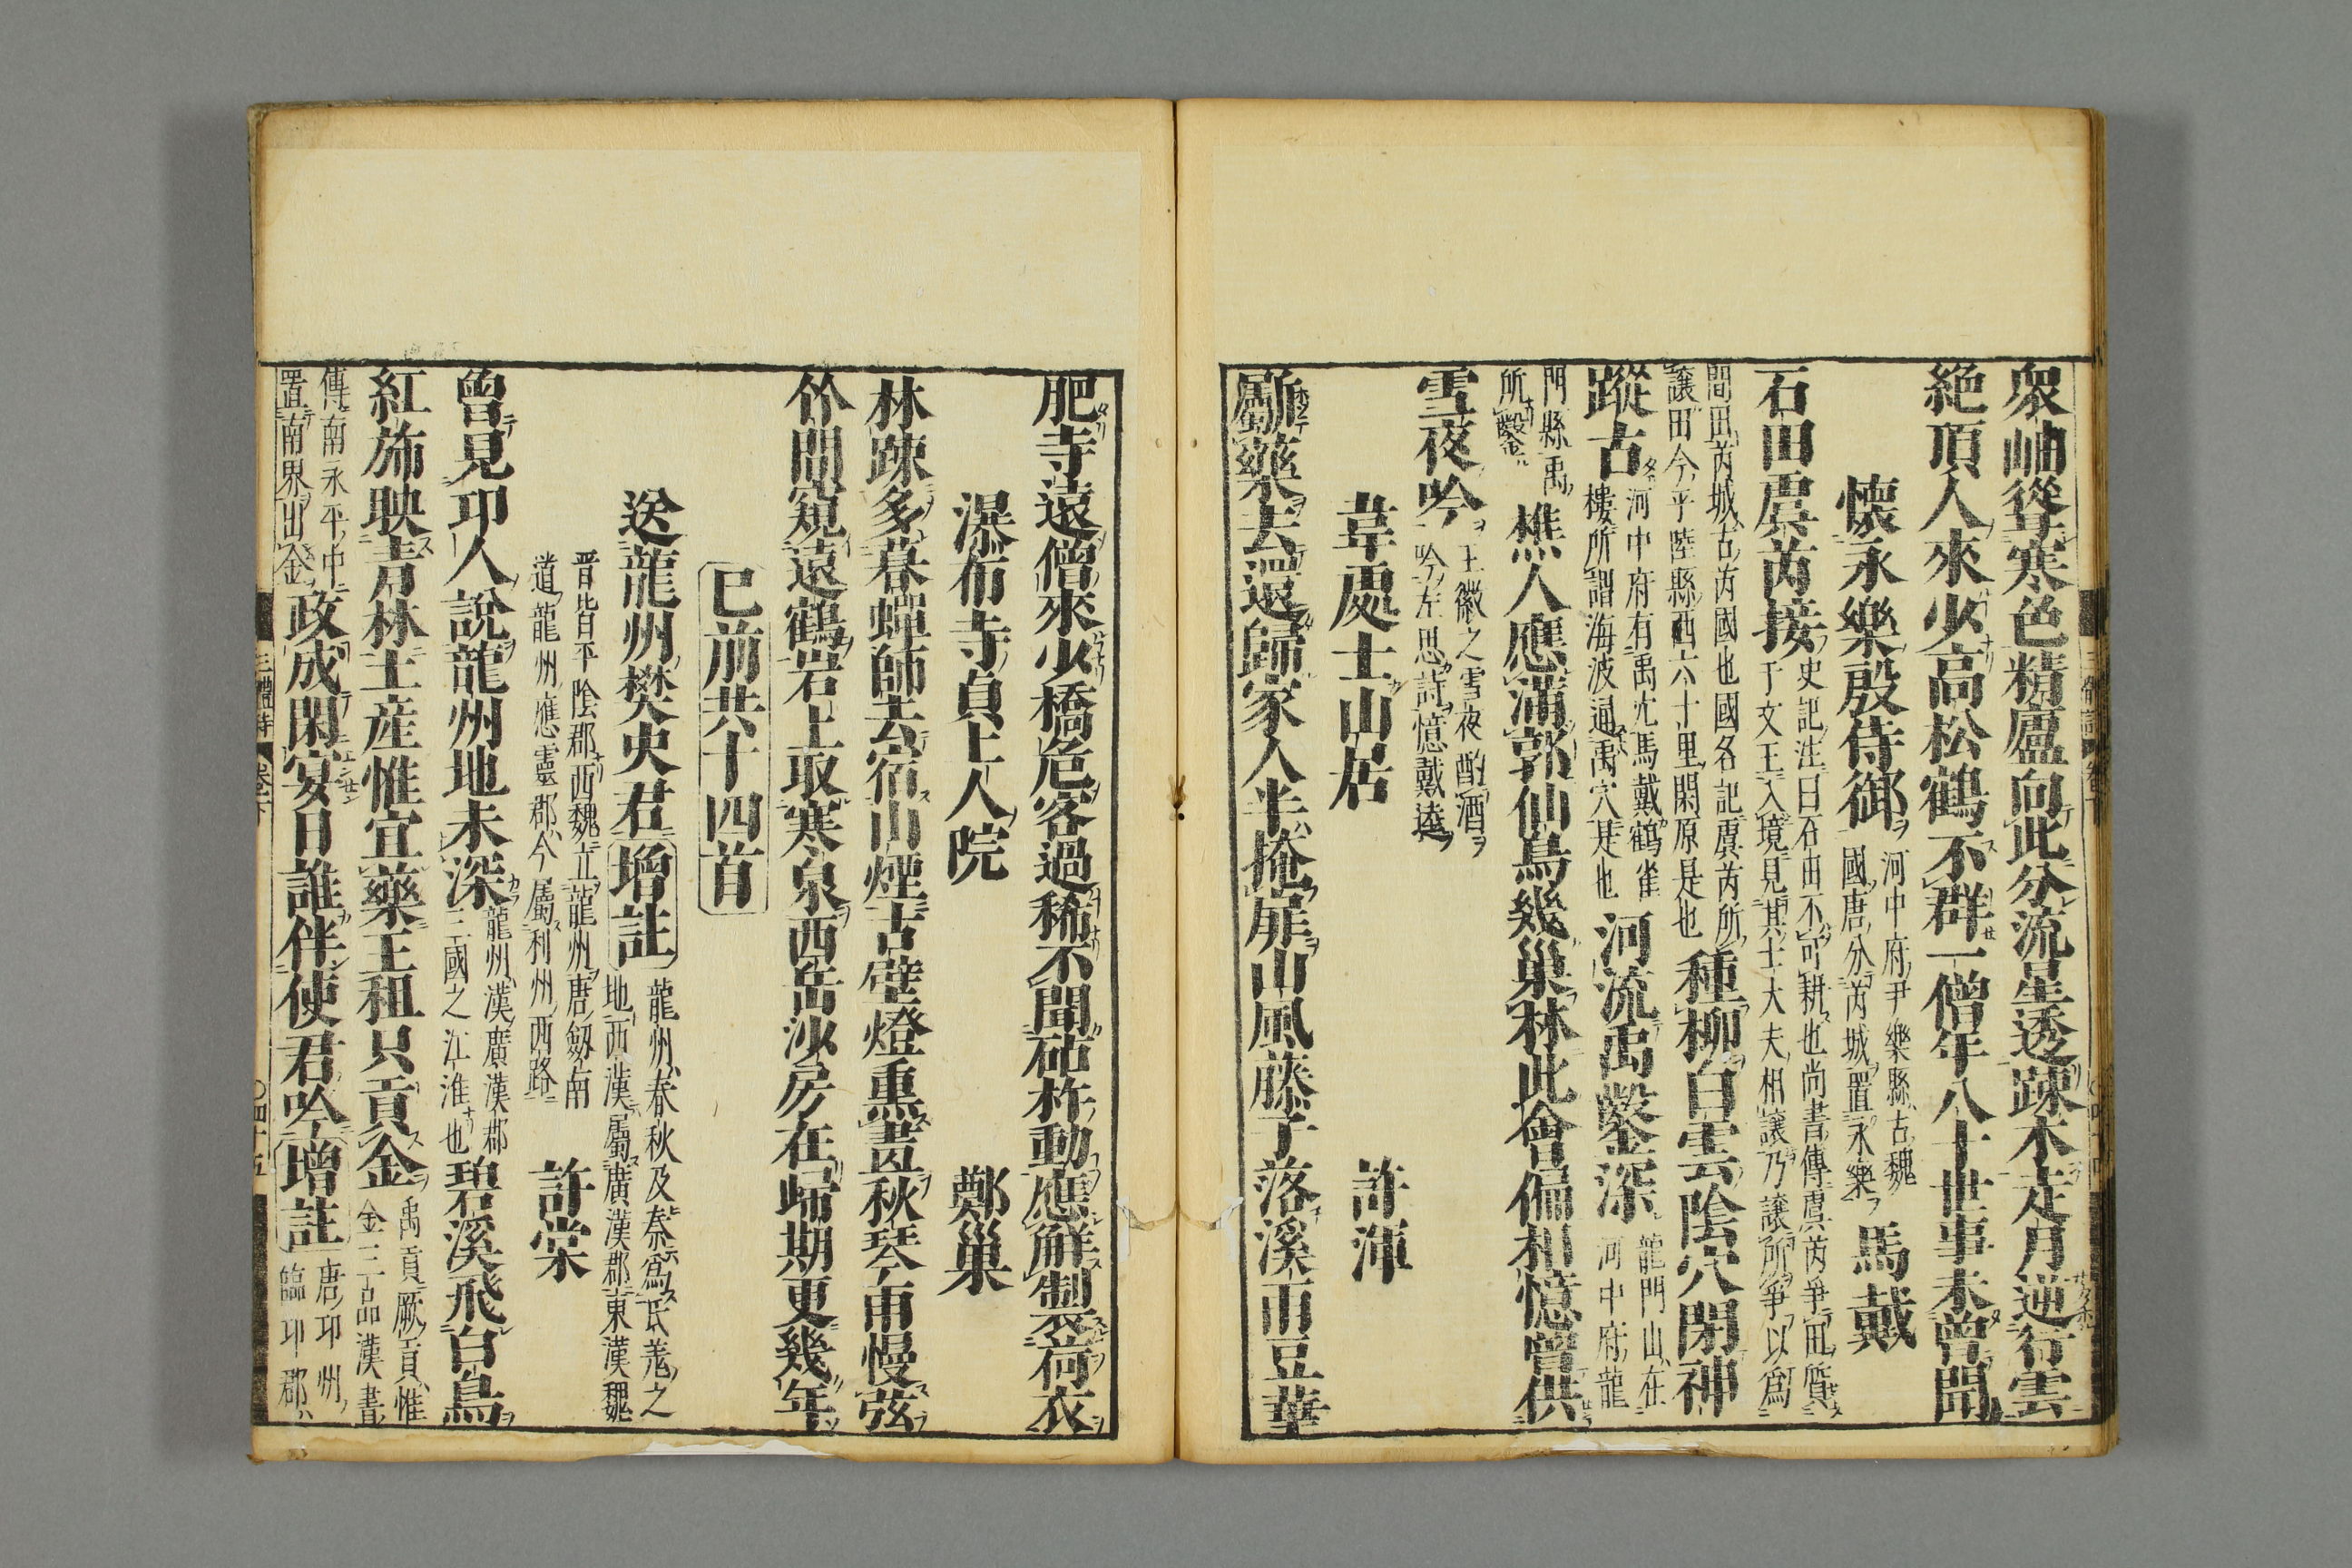 衆岫聳寒色精廬向此分流星透疎木走月逆行雲
絶頂人來少高松鶴不群一僧年八十世事未曾聞
懷永樂殷侍御
河中府尹樂縣古魏
國唐分芮城置永樂
馬戴
石田虞芮接
史記注曰石田不可耕也尚書傳虞芮爭田質
于文王入境見其士大夫相讓乃讓所爭以爲
間田芮城古芮國也國各記虞芮所
讓田今平陸縣西六十里閑原是也
種柳白雲陰穴閉神
蹤古
河中府有禹穴馬戴鶴雀
樓所謂海波通禹穴是也
河流禹鑿深
龍門山在
河中府龍
門縣禹
所鑿
樵人應滿郭仙鳥幾巢林此會偏相憶曾供
雪夜吟
王徽之雪夜酌酒
吟左思詩憶戴逵
韋處士山居
許渾
斸藥去還歸家人半掩扉山風藤子落溪雨豆華
肥寺遠僧來少橋危客過稀不聞砧杵動應解製荷衣
瀑布寺貞上人院
鄭巢
林疎多暮蟬師去宿山煙古壁燈熏畫秋琴雨慢弦
竹間窺遠鶴岩上取寒泉西岳沙房在歸期更幾年
已前共十四首
送龍州樊史君
增註
龍州春秋及秦爲氐羌之
地西漢屬廣漢郡東漢魏
晋皆平陰郡西魏立龍州唐劔南
道龍州應靈郡今屬利州西路
許棠
曾見邛人說龍州地未深
龍州漢廣漢郡
三國之江淮也
碧溪飛白鳥
紅旆映青林土産惟宜藥王租只貢金
禹貢厥貢惟
金三品漢書
傳南永平中
置南界出金
政成閑宴日誰伴使君吟
增註
唐邛州
臨邛郡
三體詩
卷下
四十五